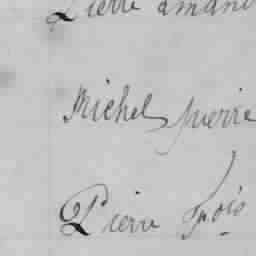 Pierre amand
Michel pierre
Pierre